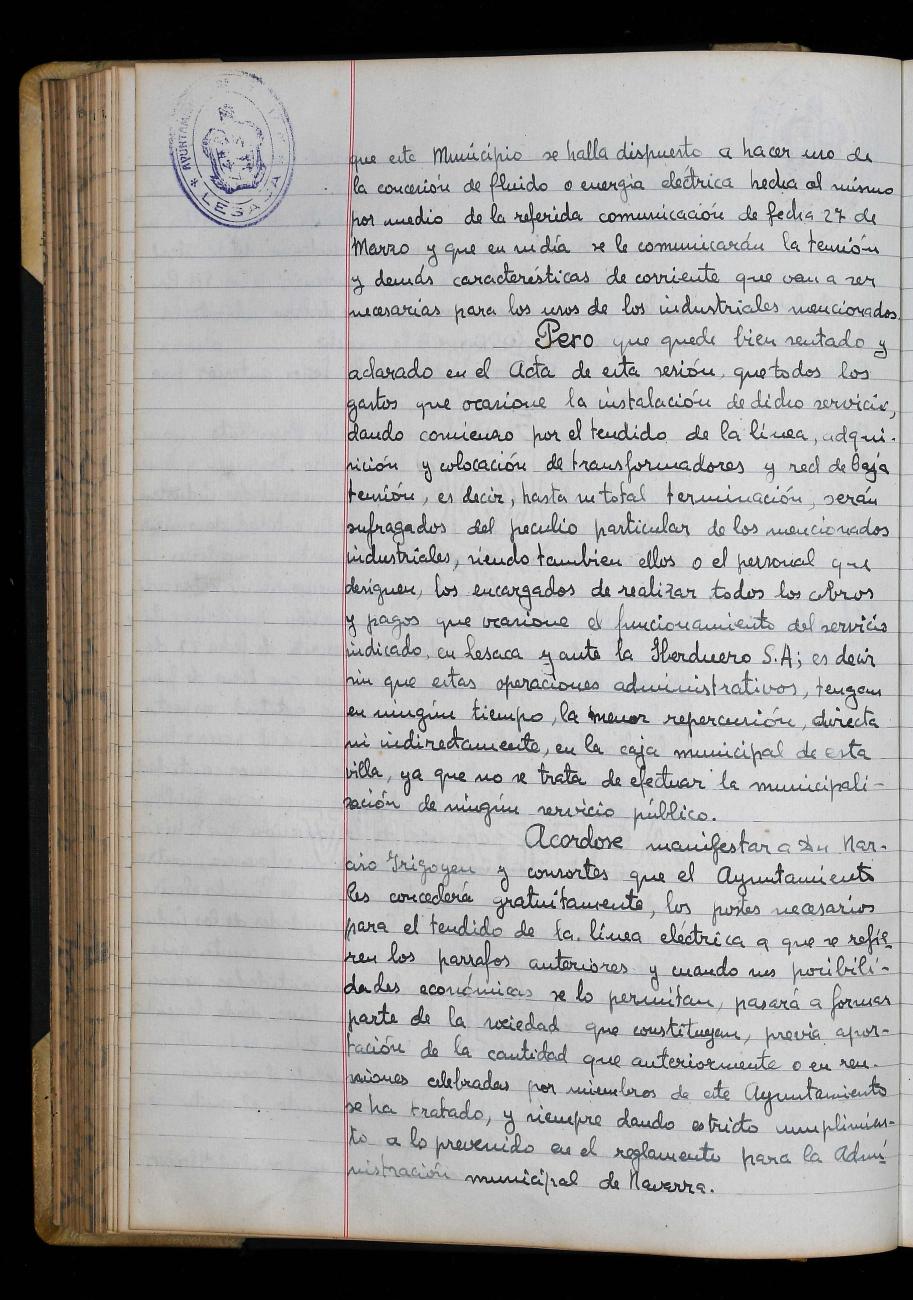 AYUNTAMIENTO DE LA VILLA
* LESACA *
que este Municipio se halla dispuesto a hacer uso de
la concesión de fluido o energia eléctrica hecha al mismo
por medio de la referida comunicación de fecha 27 de
Marzo y que en su día se le comunicarán la tensión
y demás características de corriente que van a ser
necesarias para los usos de los industriales mencionados.
Pero que quede bien sentado y
aclarado en el Acta de esta sesión, que todos los
gastos que ocasione la instalación de dicho servicio,
dando comienzo por el tendido de la línea, adqui-
sición y colocación de transformadores y red de baja
tensión, es decir, hasta su total terminación, serán
sufragados del peculio particular de los mencionados
industriales, siendo tambien ellos o el personal que
designen, los encargados de realizar todos los cobros
y pagos que ocasione el funcionamiento del servicio
indicado, en Lesaca y ante la Iberduero S.A; es decir
sin que estas operaciones administrativos, tengan
en ningún tiempo, la menor repercusión, directa
ni indirectamente, en la caja municipal de esta
villa, ya que no se trata de efectuar la municipali-
zación de ningún servicio público.
Acordose manifestar a Dn Nar-
ciso Irigoyen y consortes que el Ayuntamiento
les concederá gratuitamente, los postes necesarios
para el tendido de la línea eléctrica a que se refie-
ren los parrafos anteriores y cuando sus posibili-
dades económicas se lo permitan, pasará a formar
parte de la sociedad que constituyan, previa apor-
tación de la cantidad que anteriormente o en reu-
niones celebradas por miembros de este Ayuntamiento
se ha tratado, y siempre dando estricto cumplimien-
to a lo prevenido en el reglamento para la Admi-
nistración municipal de Navarra.